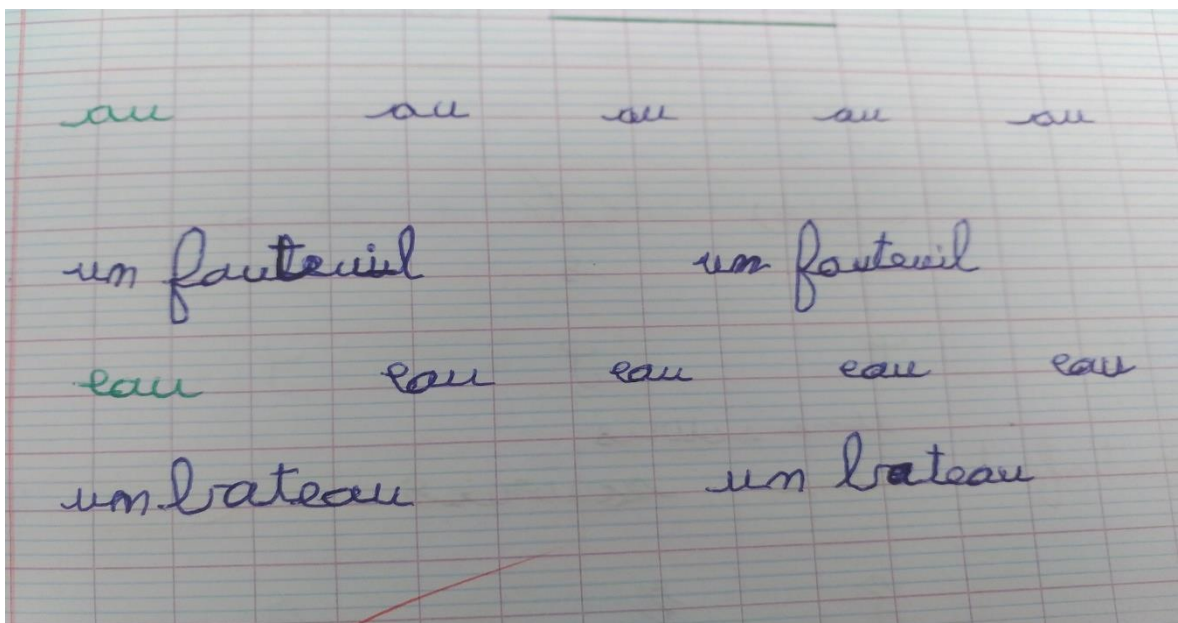 au au au au au
un fauteuil un fauteuil
eau eau eau eau eau
un bateau un bateau